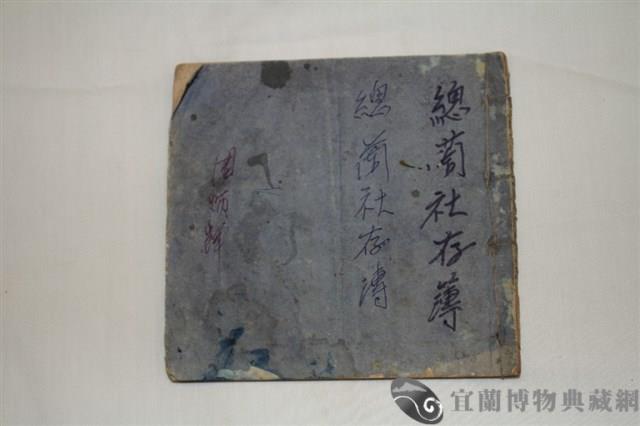 總蘭社存簿
總蘭社存簿
周炳輝
宜蘭博物典藏網